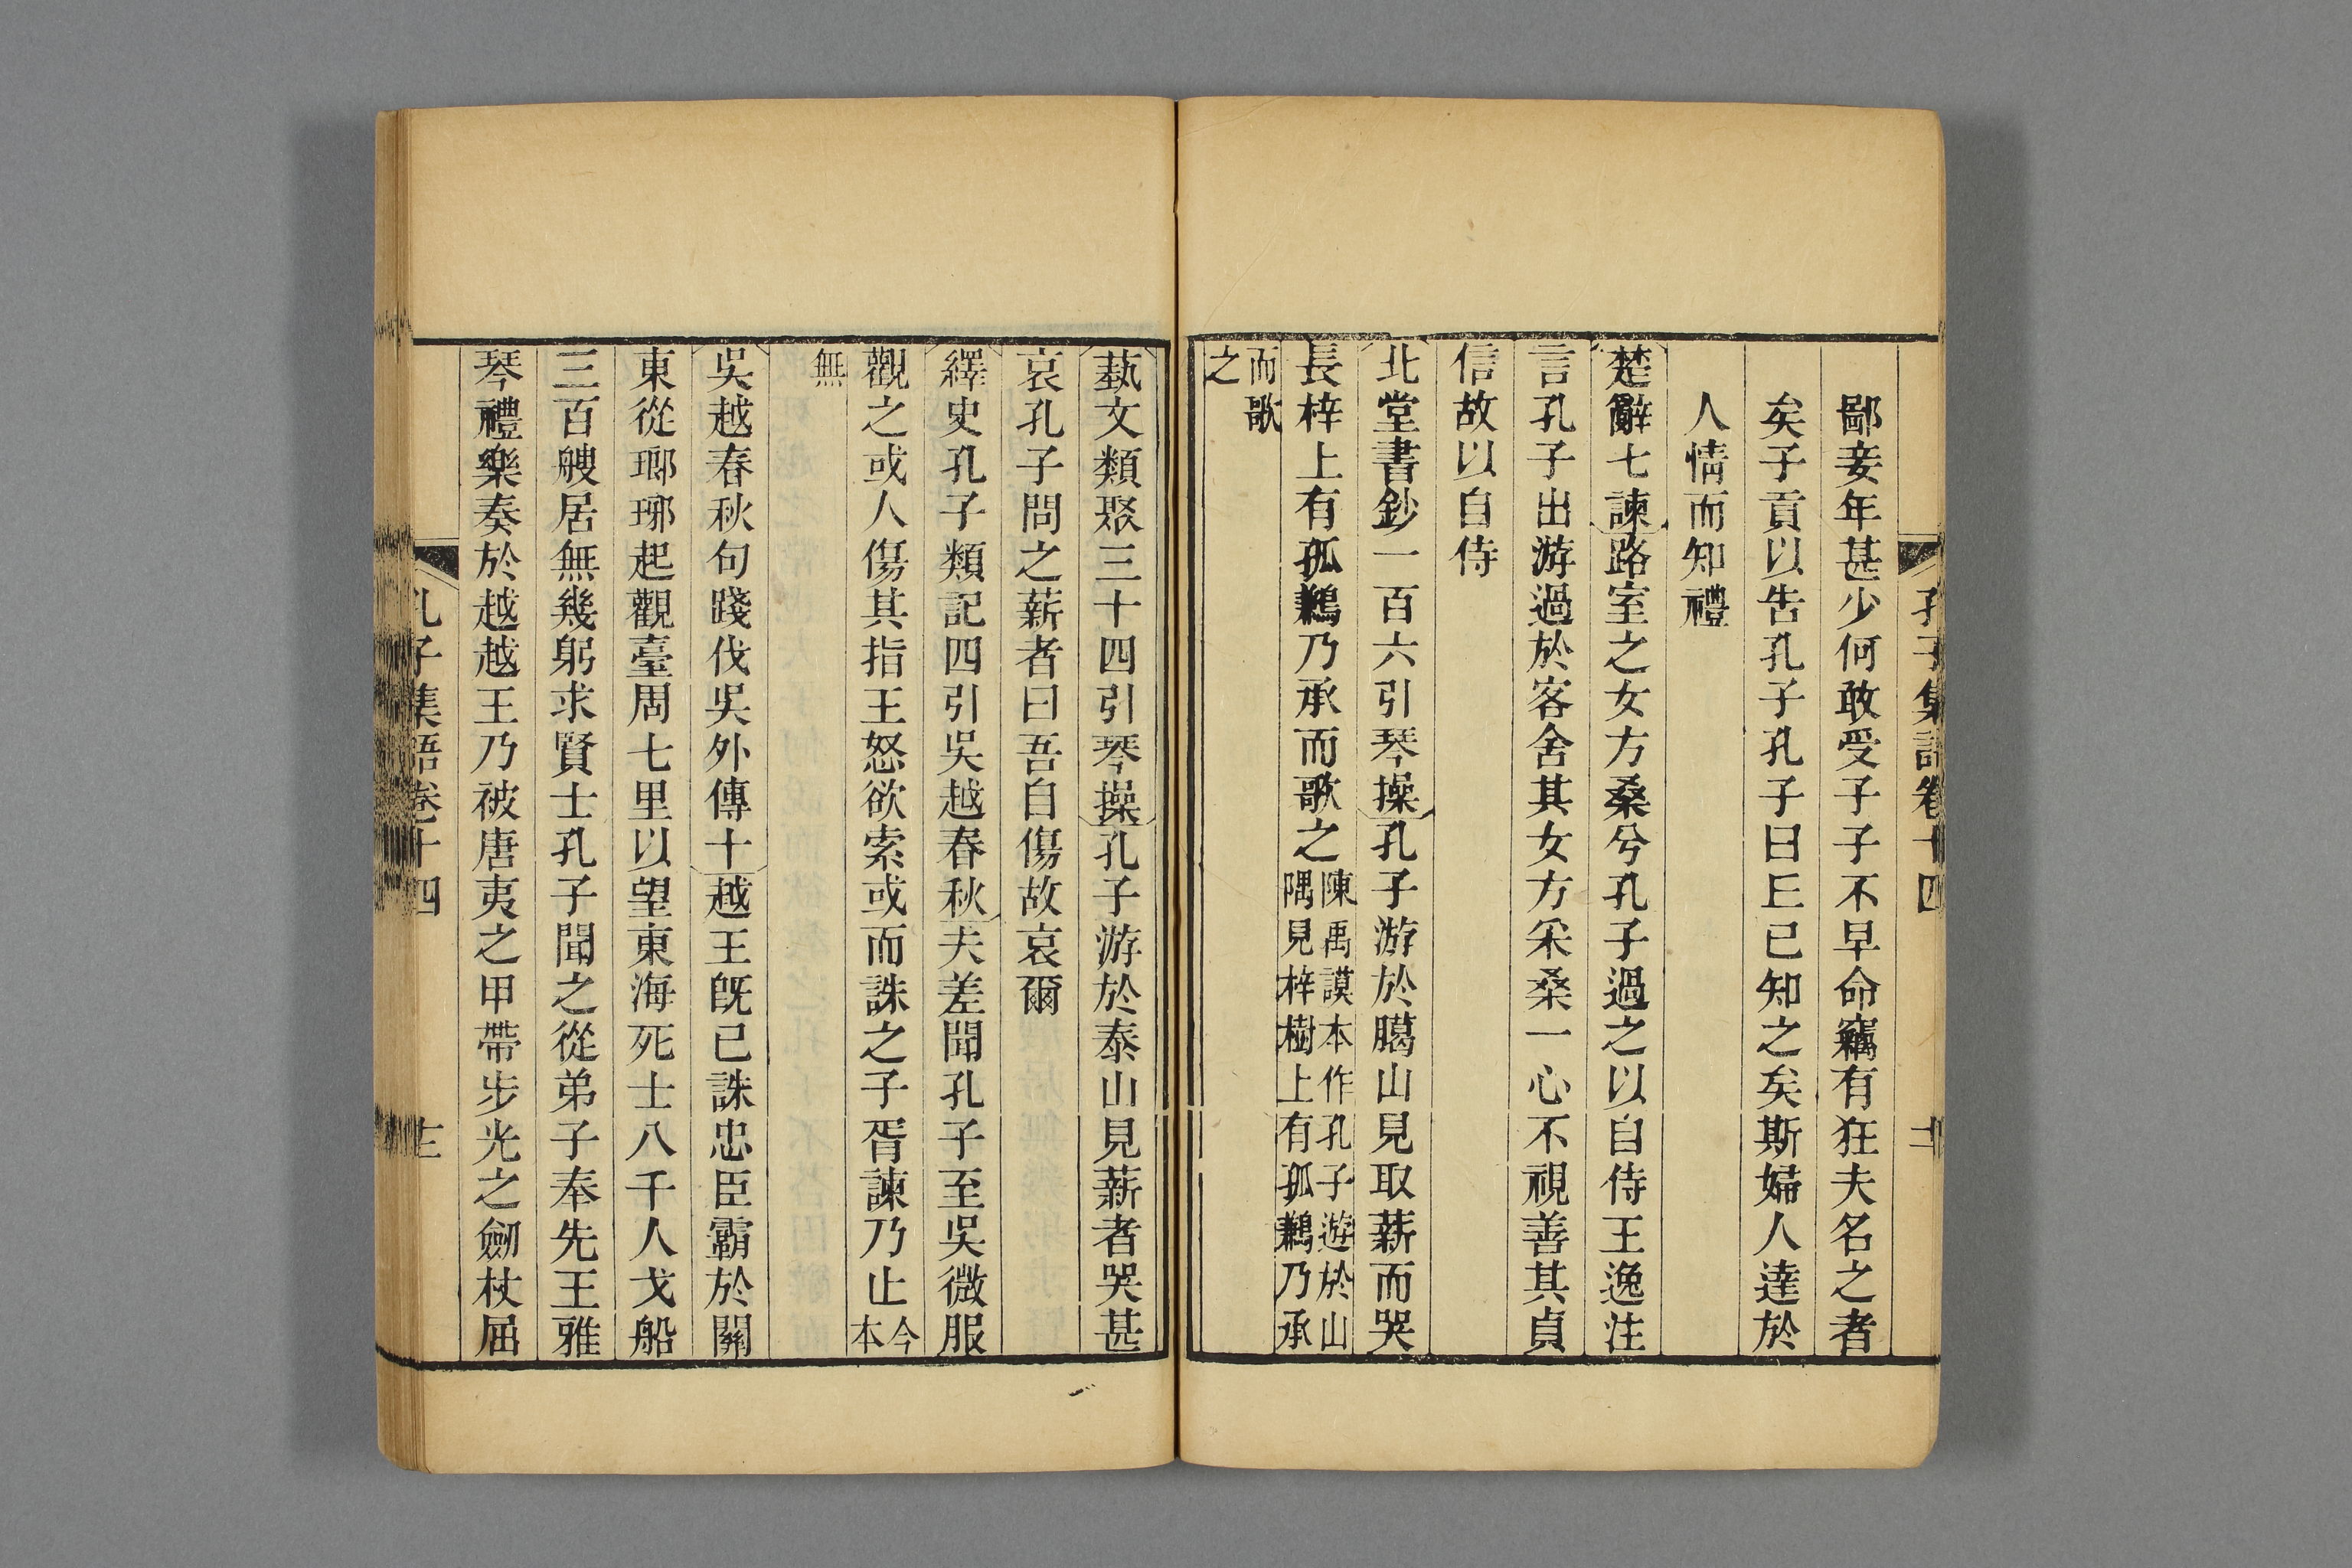 孔子集語卷十四
鄙妾年甚少何敢受子子不早命竊有狂夫名之者
矣子貢以告孔子孔子曰丘已知之矣斯婦人達於
人情而知禮
楚辭七諫路室之女方桑兮孔子過之以自侍王逸注
言孔子出游過於客舍其女方采桑一心不視善其貞
信故以自侍
北堂書鈔一百六引琴操孔子游於山見取薪而哭
長梓上有孤鶼乃承而歌之陳禹謨本作孔子遊於山
隅見梓樹上有孤鶼乃承
而歌
之
藝文類聚三十四引琴操孔子游於泰山見薪者哭甚
哀孔子問之薪者曰吾自傷故哀爾
繹史孔子類記四引吳越春秋夫差聞孔子至吳微服
觀之或人傷其指王怒欲索或而誅之子胥諫乃止今
本
無
吳越春秋句踐伐吳外傳十越王旣已誅忠臣霸於關
東從瑯琊起觀臺周七里以望東海死士八千人戈船
三百艘居無幾躬求賢士孔子聞之從弟子奉先王雅
琴禮樂奏於越越王乃被唐夷之甲帶步光之劒杖屈
孔子集語卷十四